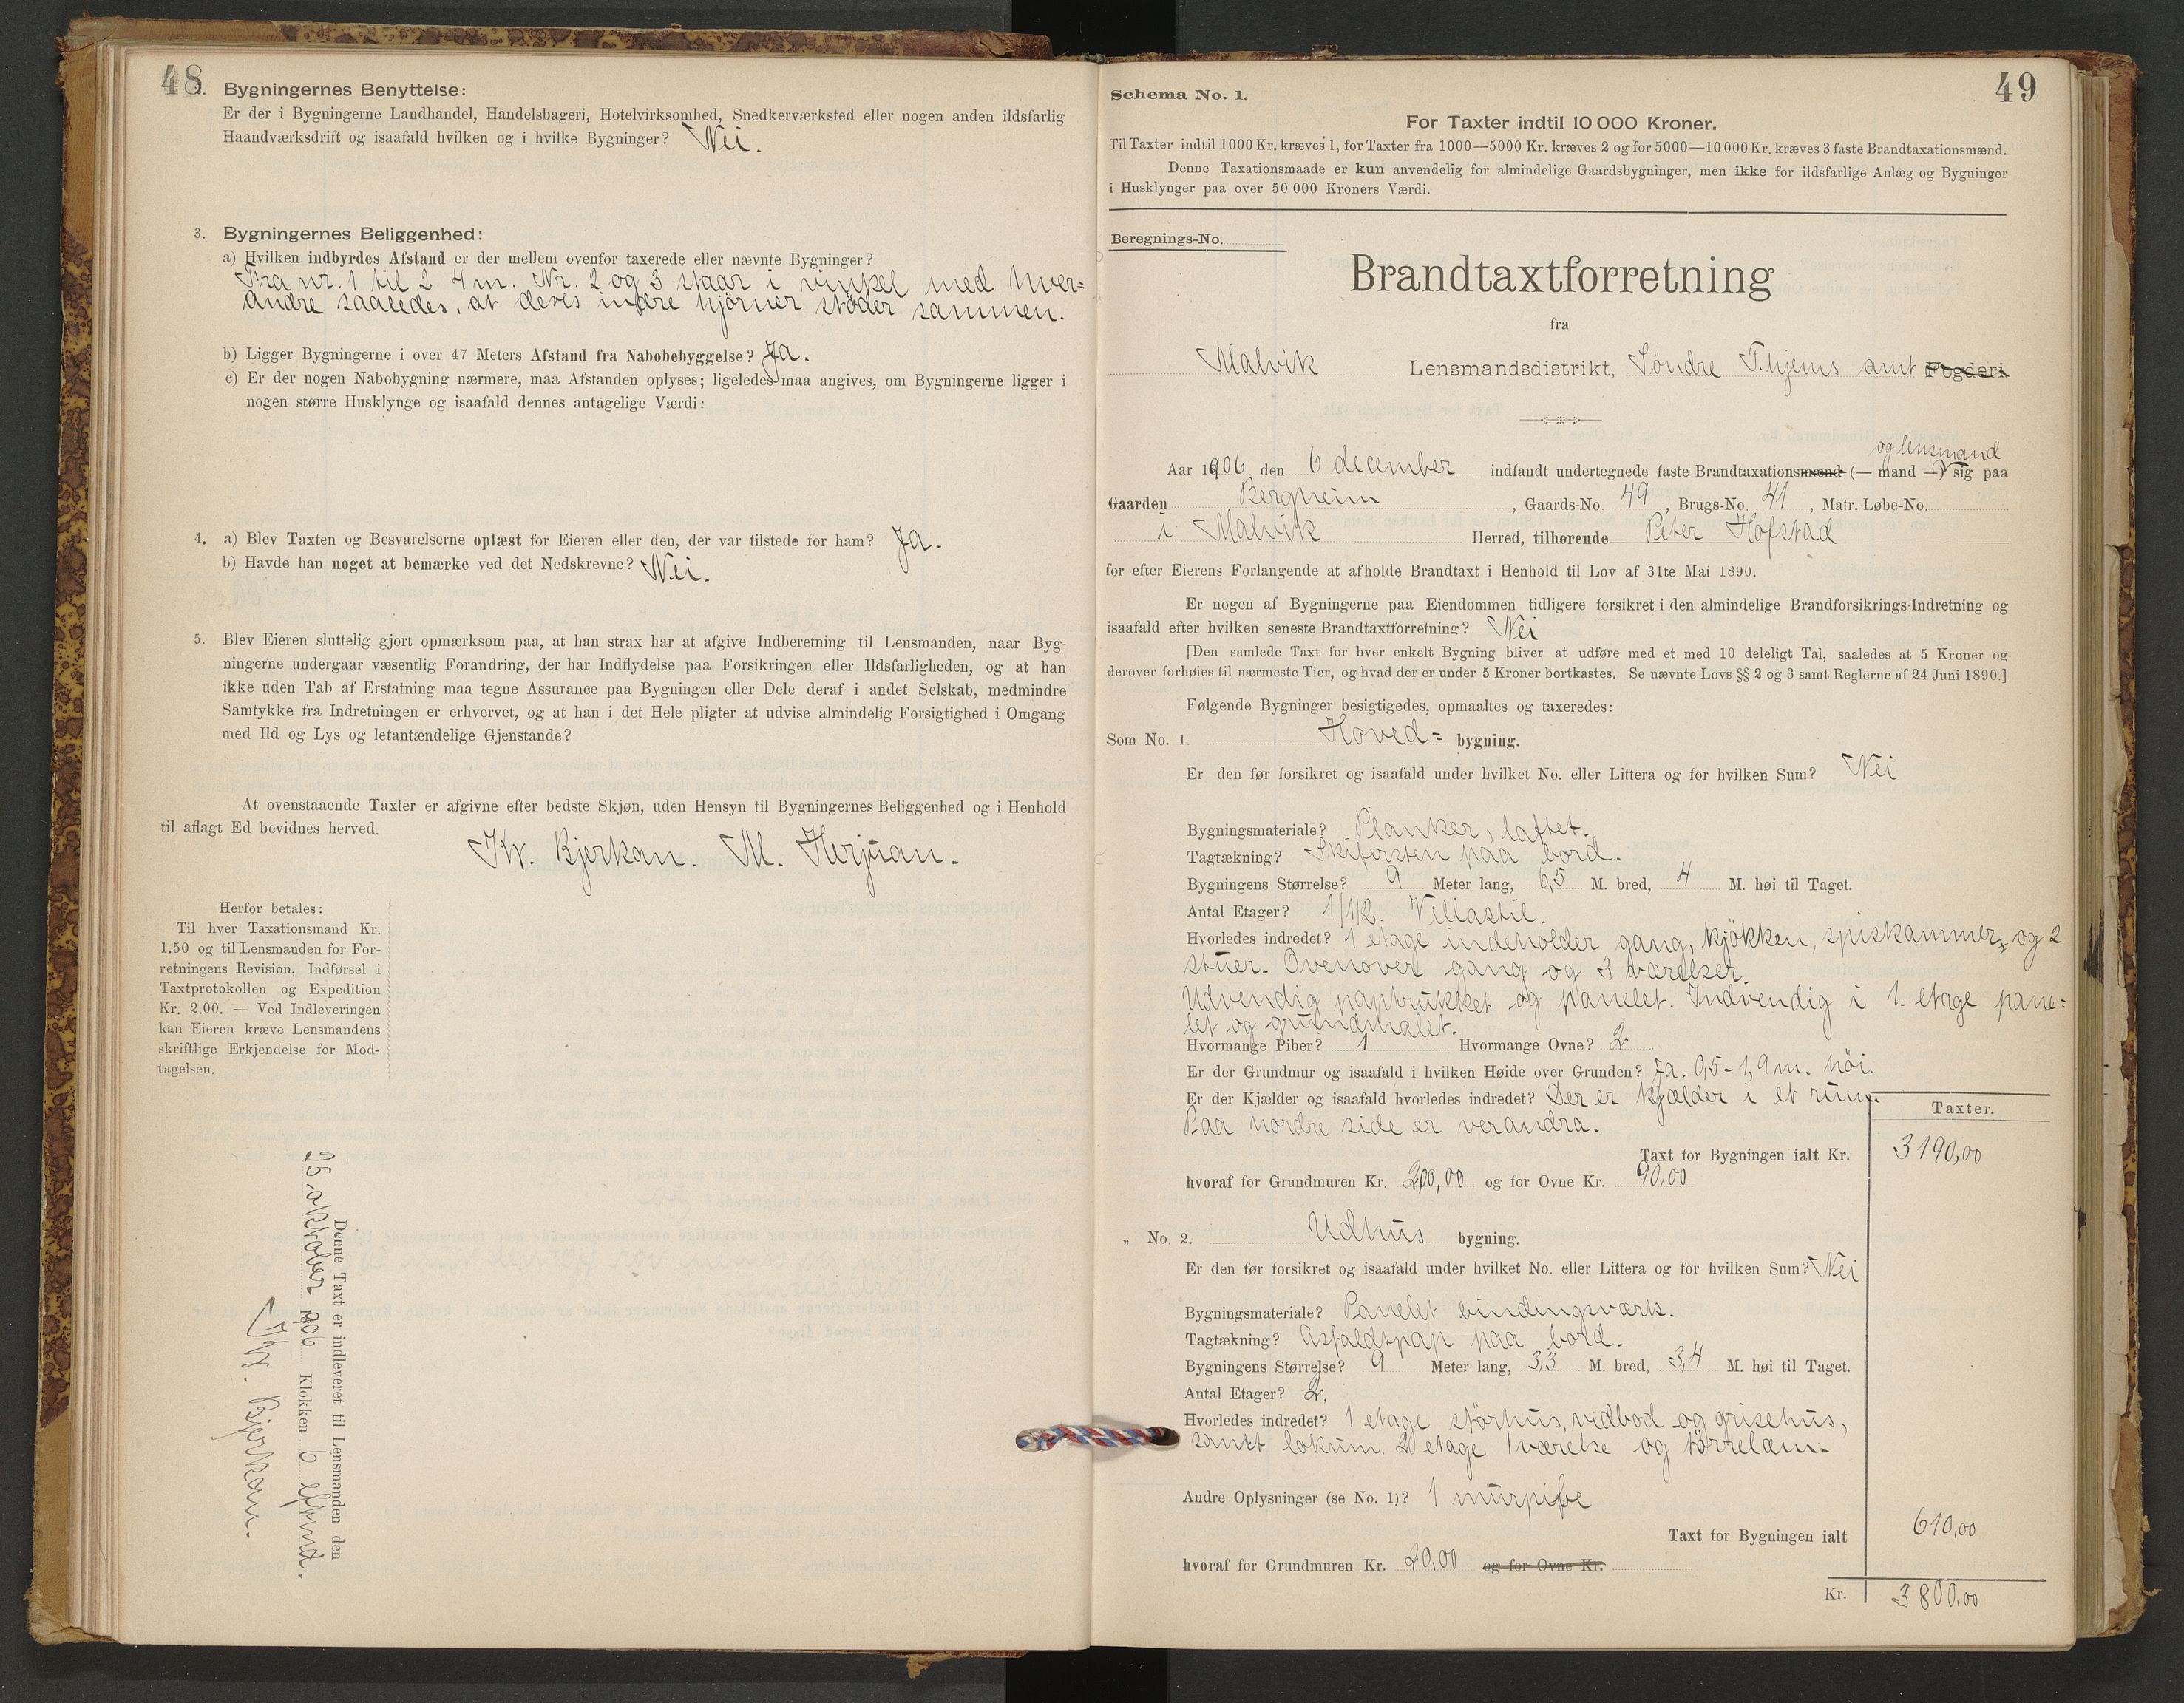 48
2. Bygningernes Benyttelse:
Er der i Bygningerne Landhandel, Handelsbageri, Hotelvirksomhed, Snedkerværksted eller nogen anden ildsfarlig
Haandværksdrift og isaafald hvilken og i hvilke Bygninger? Nei.
3. Bygningernes Beliggenhed:
a) Hvilken indbyrdes Afstand er der mellem ovenfor taxerede eller nævnte Bygninger?
Fra nr. 1 til 2 4 m. Nr. 2 og 3 staar i vinkel med hver=
andre saaledes, at deres indre hjörner støder sammen.
b) Ligger Bygningerne i over 47 Meters Afstand fra Nabobebyggelse? Ja.
c) Er der nogen Nabobygning nærmere, maa Afstanden oplyses; ligeledes maa angives, om Bygningerne ligger i
nogen større Husklynge og isaafald dennes antagelige Værdi:
4. a) Blev Taxten og Besvarelserne oplæst for Eieren eller den, der var tilstede for ham? Ja.
b) Havde han noget at bemærke ved det Nedskrevne? Nei.
5. Blev Eieren sluttelig gjort opmærksom paa, at han strax har at afgive Indberetning til Lensmanden, naar Byg-
ningerne undergaar væsentlig Forandring, der har Indflydelse paa Forsikringen eller Ildsfarligheden, og at han
ikke uden Tab af Erstatning maa tegne Assurance paa Bygningen eller Dele deraf i andet Selskab, medmindre
Samtykke fra Indretningen er erhvervet, og at han i det Hele pligter at udvise almindelig Forsigtighed i Omgang
med Ild og Lys og letantændelige Gjenstande?
At ovenstaaende Taxter er afgivne efter bedste Skjøn, uden Hensyn til Bygningernes Beliggenhed og i Henhold
til aflagt Ed bevidnes herved.
Kr. Bjerkan. M. Herjuan.
Herfor betales:
Til hver Taxationsmand Kr.
1.50 og til Lensmanden for For-
retningens Revision, Indførsel i
Taxtprotokollen og Expedition
Kr. 2.00. — Ved Indleveringen
kan Eieren kræve Lensmandens
skriftlige Erkjendelse for Mod-
tagelsen.
Denne Taxt er indleveret til Lensmanden den
25 oktober 1906 Klokken 6 eftmd.
Kr. Bjerkan.
49
Schema No. 1.
For Taxter indtil 10 000 Kroner.
Til Taxter indtil 1000 Kr. kræves 1, for Taxter fra 1000—5000 Kr. kræves 2 og for 5000—10 000 Kr. kræves 3 faste Brandtaxationsmænd.
Denne Taxationsmaade er kun anvendelig for almindelige Gaardsbygninger, men ikke for ildsfarlige Anlæg og Bygninger
i Husklynger paa over 50 000 Kroners Værdi.
Beregnings-No.
Brandtaxtforretning
fra
Malvik Lensmandsdistrikt, Söndre T.hjems amt Fogderi
og lensmand
Aar 1906 den 6 december indfandt undertegnede faste Brandtaxationsmænd (— mand —) sig paa
Gaarden Bergheim, Gaards-No. 49, Brugs-No. 41, Matr.-Løbe-No.
i Malvik Herred, tilhørende Peter Hofstad
for efter Eierens Forlangende at afholde Brandtaxt i Henhold til Lov af 31te Mai 1890.
Er nogen af Bygningerne paa Eiendommen tidligere forsikret i den almindelige Brandforsikrings-Indretning og
isaafald efter hvilken seneste Brandtaxtforretning? Nei
[Den samlede Taxt for hver enkelt Bygning bliver at udføre med et med 10 deleligt Tal, saaledes at 5 Kroner og
derover forhøies til nærmeste Tier, og hvad der er under 5 Kroner bortkastes. Se nævnte Lovs §§ 2 og 3 samt Reglerne af 24 Juni 1890.]
Følgende Bygninger besigtigedes, opmaaltes og taxeredes:
Som No. 1. Hoved= bygning.
Er den før forsikret og isaafald under hvilket No. eller Littera og for hvilken Sum? Nei
Bygningsmateriale? Planker, laftet.
Tagtækning? Skifersten paa bord.
Bygningens Størrelse? 9 Meter lang, 6,5 M. bred, 4 M. høi til Taget.
Antal Etager? 1 1/2. Villastil.
Hvorledes indredet? 1 etage indeholder gang, kjökken, spiskammer, og 2
stuer. Ovenover gang og 3 værelser.
Udvendig paptrukket og panelet. Indvendig i 1. etage pane=
let og grundmalet.
Hvormange Piber? 1 Hvormange Ovne? 2
Er der Grundmur og isaafald i hvilken Høide over Grunden? Ja. 0,5 - 1,9 m. höi.
Er der Kjælder og isaafald hvorledes indredet? Der er kjælder i et rum.
Paa nordre side er verandra.
Taxter.
Taxt for Bygningen ialt Kr. 3190,00
hvoraf for Grundmuren Kr. 200,00 og for Ovne Kr. 90,00
„ No. 2. Udhus bygning.
Er den før forsikret og isaafald under hvilket No. eller Littera og for hvilken Sum? Nei
Bygningsmateriale? Panelet bindingsværk.
Tagtækning? Asfaldtpap paa bord.
Bygningens Størrelse? 9 Meter lang, 3,3 M. bred, 3,4 M. høi til Taget.
Antal Etager? 2.
Hvorledes indredet? 1 etage störhus, vedbod og grisehus,
samt lokum. 2 etage 1 værelse og törrelæm.
Andre Oplysninger (se No. 1)? 1 murpibe
Taxt for Bygningen ialt 610,00
hvoraf for Grundmuren Kr. 20,00 og for Ovne Kr.
Kr. 3800,00